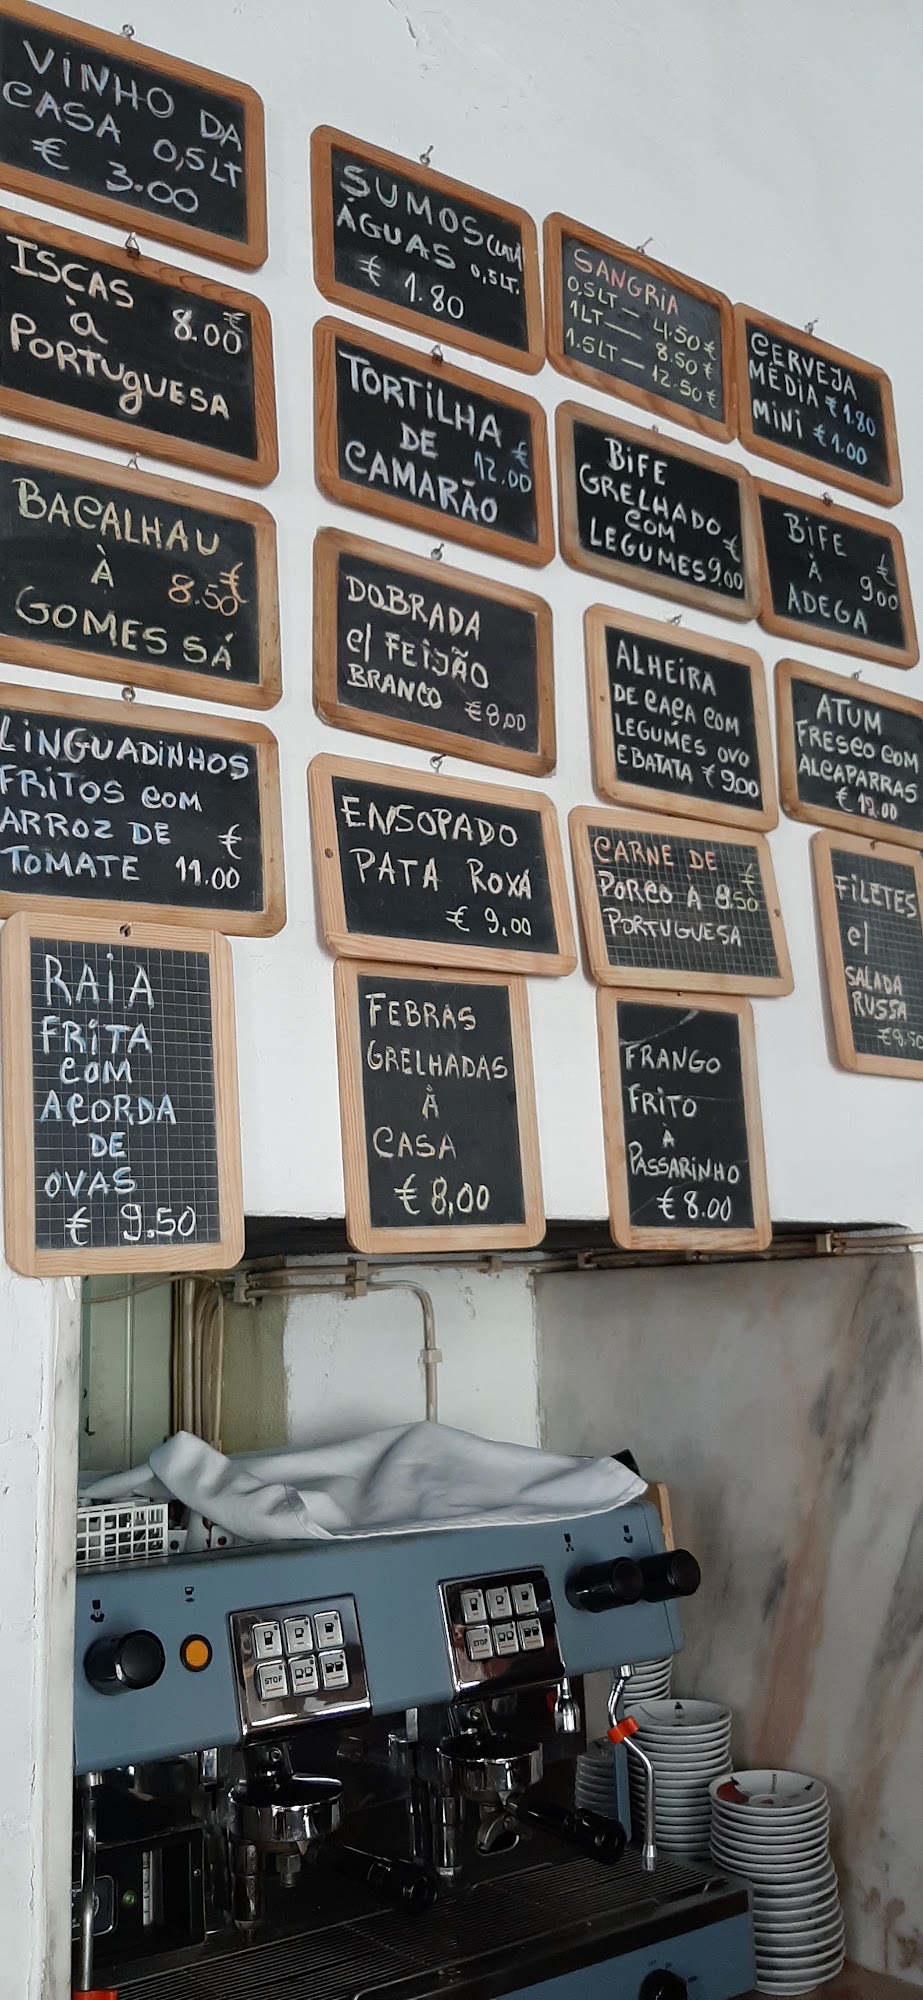 VINHO DA
CASA 0,5LT
€ 3.00
SUMOS (LATA)
ÁGUAS 0,5LT.
€ 1.80
SANGRIA
0,5LT — 4.50€
1LT — 8.50€
1.5LT — 12.50€
CERVEJA
MÉDIA €1.80
MINI €1.00
ISCAS
à 8.00€
PORTUGUESA
TORTILHA
DE €
CAMARÃO 12.00
BIFE
GRELHADO
COM €
LEGUMES 9.00
BIFE €
À 9.00
ADEGA
BACALHAU
À 8.50€
GOMES SÁ
DOBRADA
C/ FEIJÃO
BRANCO €8,00
ALHEIRA
DE CAÇA COM
LEGUMES OVO
E BATATA €9.00
ATUM
FRESCO COM
ALCAPARRAS
€ 12.00
LINGUADINHOS
FRITOS COM
ARROZ DE €
TOMATE 11.00
ENSOPADO
PATA ROXA
€ 9,00
CARNE DE €
PORCO À 8.50
PORTUGUESA
FILETES
C/
SALADA
RUSSA
€9.50
RAIA
FRITA
COM
AÇORDA
DE
OVAS
€ 9.50
FEBRAS
GRELHADAS
À
CASA
€ 8,00
FRANGO
FRITO
À
PASSARINHO
€ 8.00
STOP
STOP